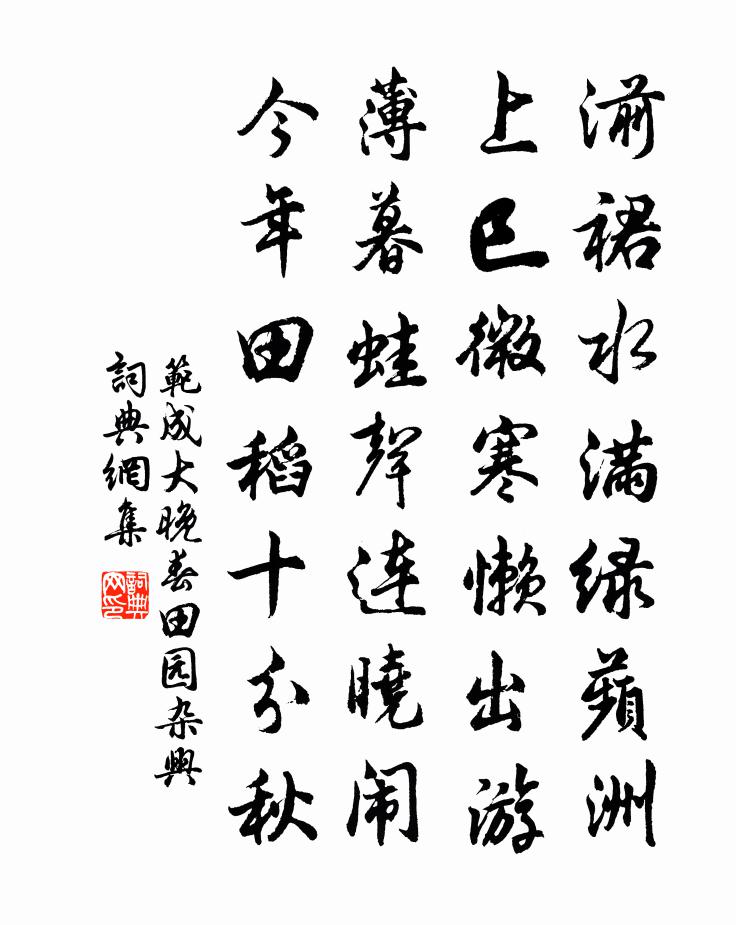 湔裙水满绿蘋洲
上巳微寒懒出游
薄暮蛙聲连曉闹
今年田稻十分秋
範成大晚春田园杂興
詞典網集
詞典網印